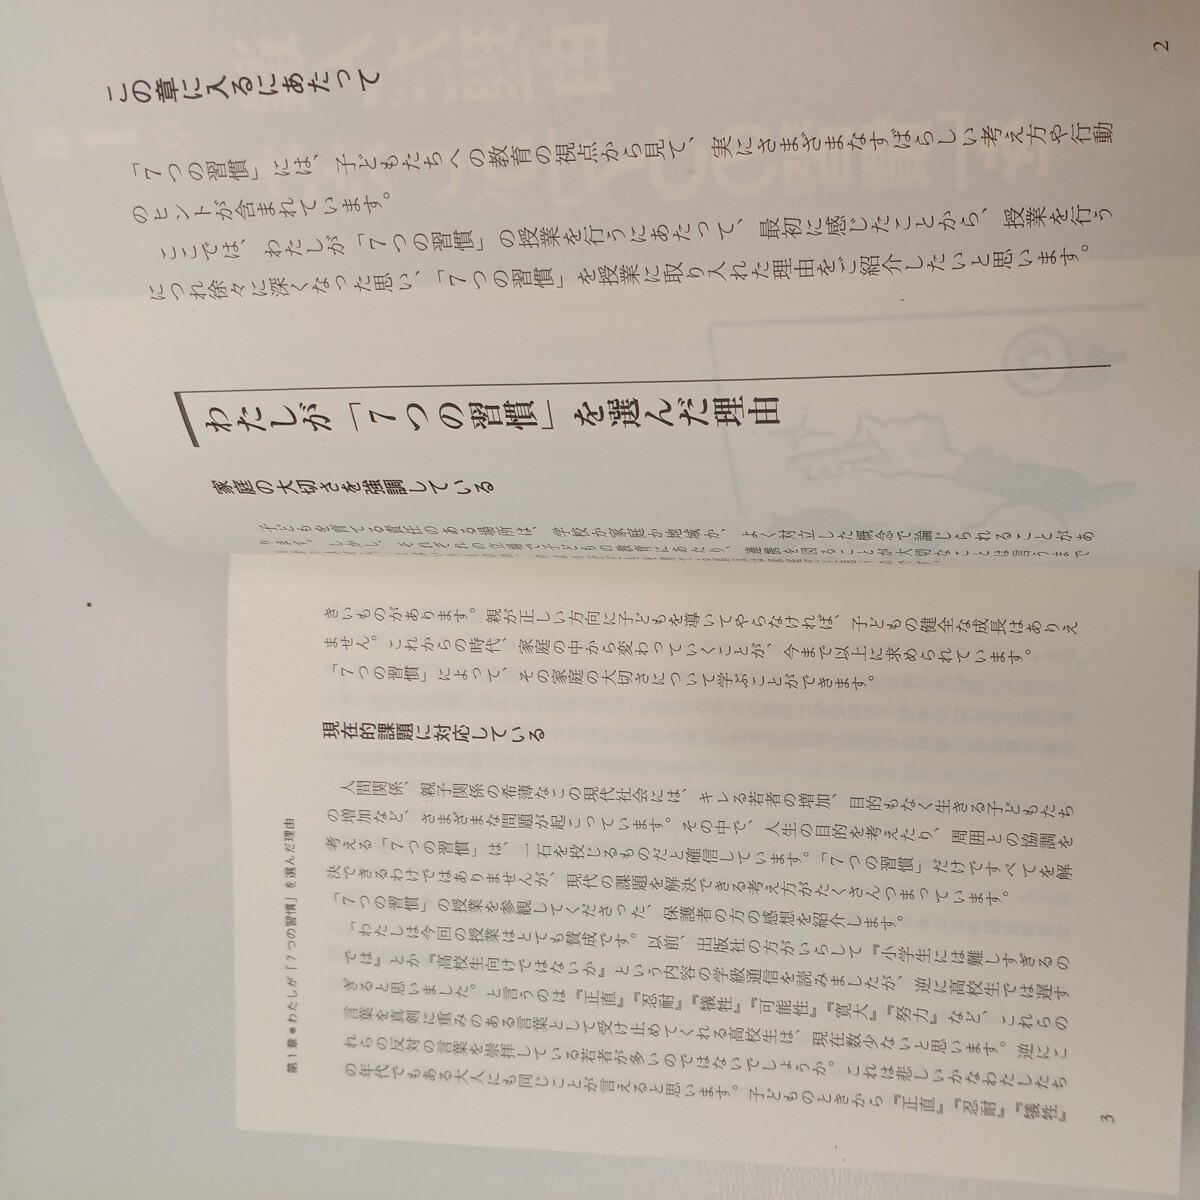 2
この章に入るにあたって
「7つの習慣」には、子どもたちへの教育の視点から見て、実にさまざまなすばらしい考え方や行動
のヒントが含まれています。
ここでは、わたしが「7つの習慣」の授業を行うにあたって、最初に感じたことから、授業を行う
につれ徐々に深くなった思い、「7つの習慣」を授業に取り入れた理由をご紹介したいと思います。
わたしが「7つの習慣」を選んだ理由
家庭の大切さを強調している
子どもを育てる責任のある場所は、学校か家庭か地域か、よく対立した概念で論じられることがあ
ります。しかし、それぞれの立場で子どもの教育にあたり、連携を図ることが大切なことは言うまで
きいものがあります。親が正しい方向に子どもを導いてやらなければ、子どもの健全な成長はありえ
ません。これからの時代、家庭の中から変わっていくことが、今まで以上に求められています。
「7つの習慣」によって、その家庭の大切さについて学ぶことができます。
現在的課題に対応している
人間関係、親子関係の希薄なこの現代社会には、キレる若者の増加、目的もなく生きる子どもたち
の増加など、さまざまな問題が起こっています。その中で、人生の目的を考えたり、周囲との協調を
考える「7つの習慣」は、一石を投じるものだと確信しています。「7つの習慣」だけですべてを解
決できるわけではありませんが、現代の課題を解決できる考え方がたくさんつまっています。
「7つの習慣」の授業を参観してくださった、保護者の方の感想を紹介します。
「わたしは今回の授業はとても賛成です。以前、出版社の方がいらして『小学生には難しすぎるの
では』とか『高校生向けではないか』という内容の学級通信を読みましたが、逆に高校生では遅す
ぎると思いました。と言うのは『正直』『忍耐』『犠牲』『可能性』『寛大』『努力』など、これらの
言葉を真剣に重みのある言葉として受け止めてくれる高校生は、現在数少ないと思います。逆にこ
れらの反対の言葉を崇拝している若者が多いのではないでしょうか。これは悲しいかなわたしたち
の年代でもある大人にも同じことが言えると思います。子どものときから『正直』『忍耐』『犠牲』
第1章●わたしが「7つの習慣」を選んだ理由
3